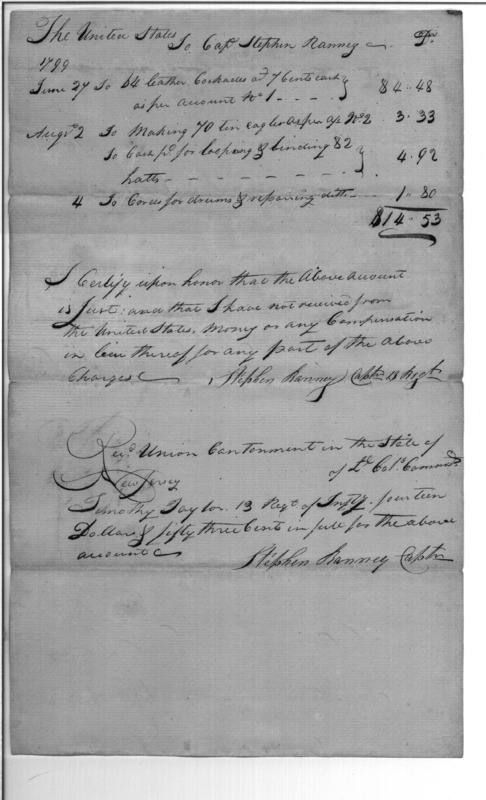 The United States
To Capt Stephen Ranney Dr
1799
June 27 To 64 leather Cockades at 7 Cents each
as per account No 1 - - - - } $4..48
Augst 2 To Making 70 tin eagles as per ac No 2 3..33
To Cash pd for looping & binding 82
hatts - - - - - - - - } 4..92
4 To Cords for drums & repairing ditto - - - 1..80
$14..53
I Certify upon honor that the Above Account
is Just: and that I have not received from
the United States, Money or any Compensation
in lieu thereof for any part of the above
Charges
Stephen Ranney Captn 13 Regt
Recd Union Cantonment in the State of
New Jersey of Lt Colo Commdt
Timothy Taylor 13 Regt of Infty. fourteen
Dollars & fifty three Cent in full for the above
account
Stephen Ranney Captn